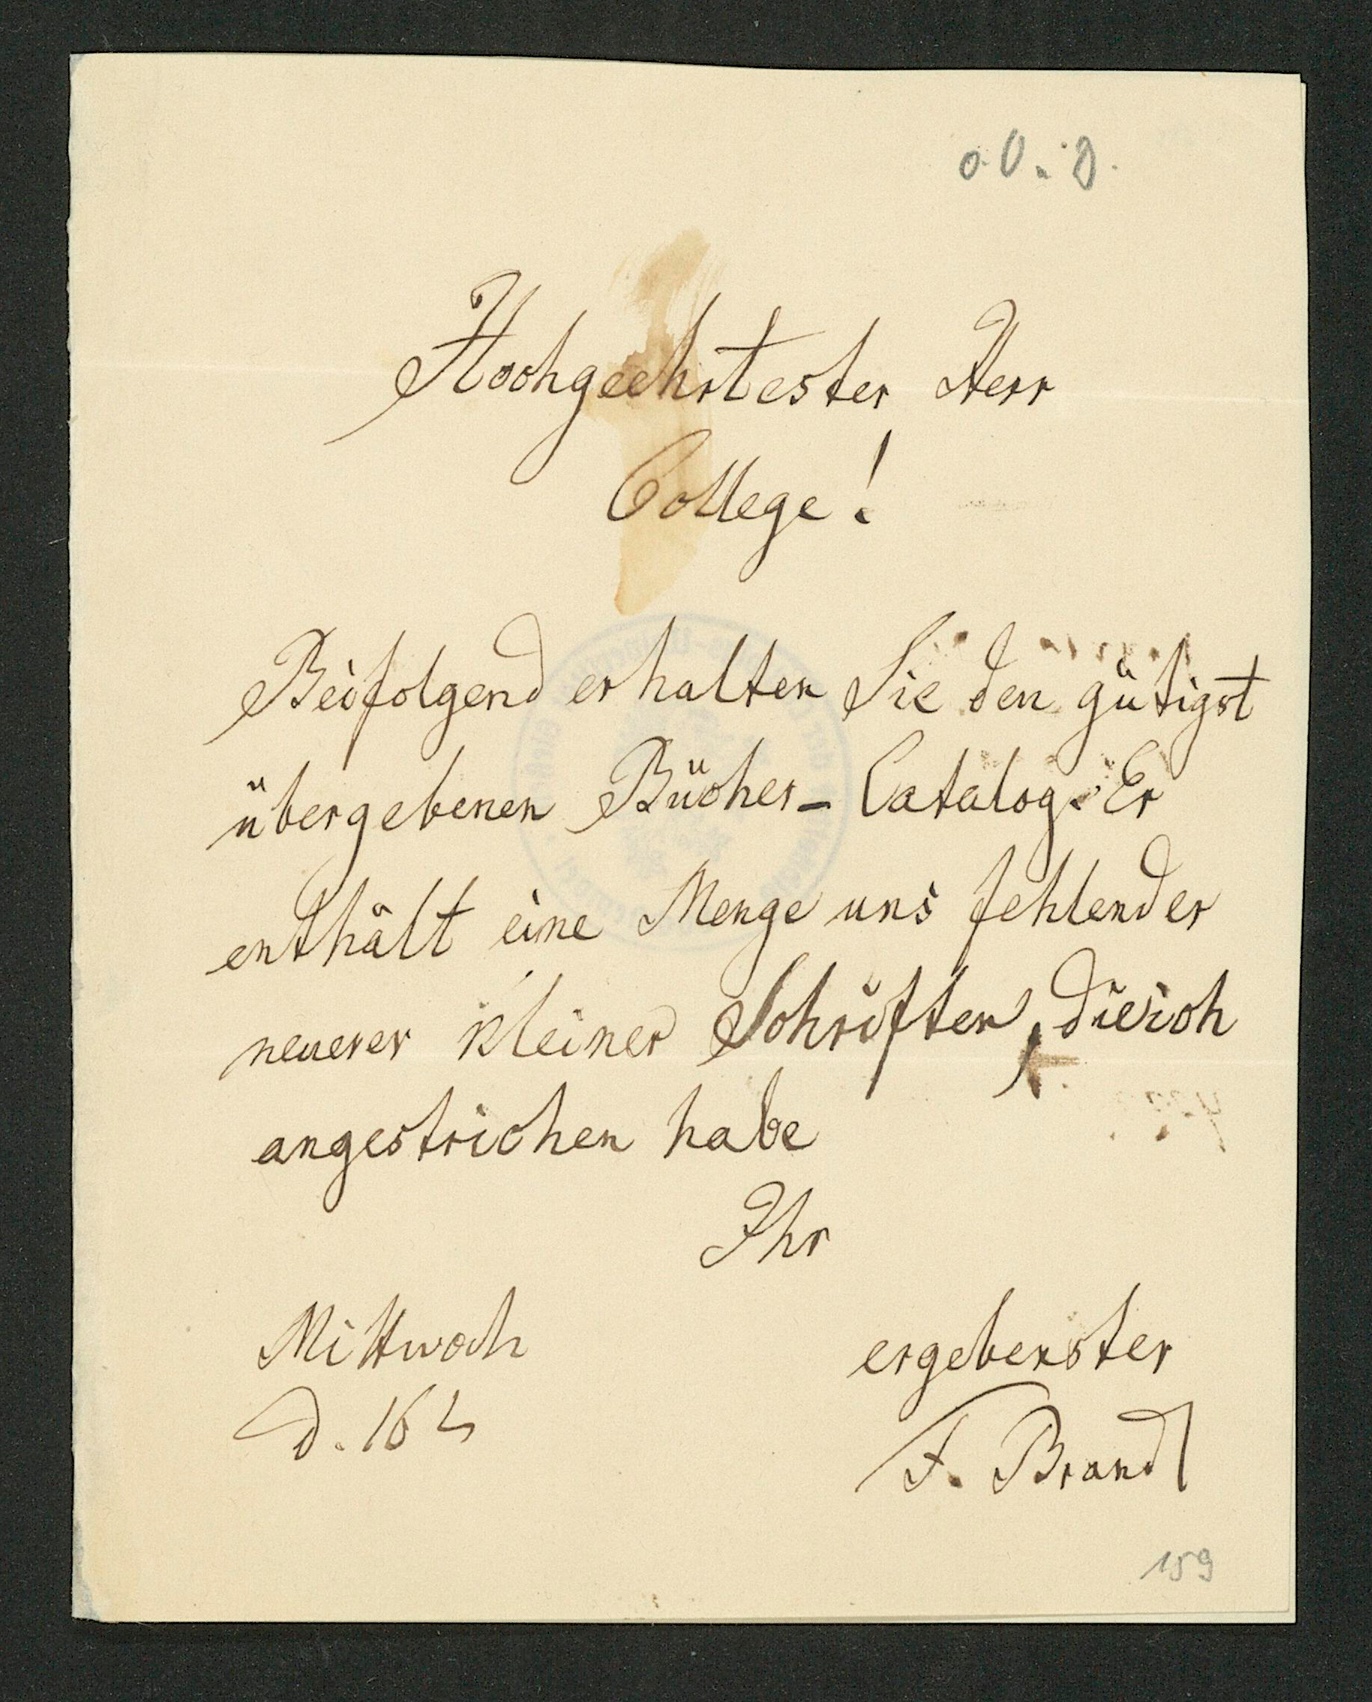 o. O. u. D.
Hochgeehrtester Herr
College!
Beifolgend erhalten Sie den gütigst
übergebenen Bücher-Catalog. Er
enthält eine Menge uns fehlender
neuerer kleiner Schriften, die ich
angestrichen habe
Ihr
Mittwoch
ergebenster
d. 16
F. Brandt
159